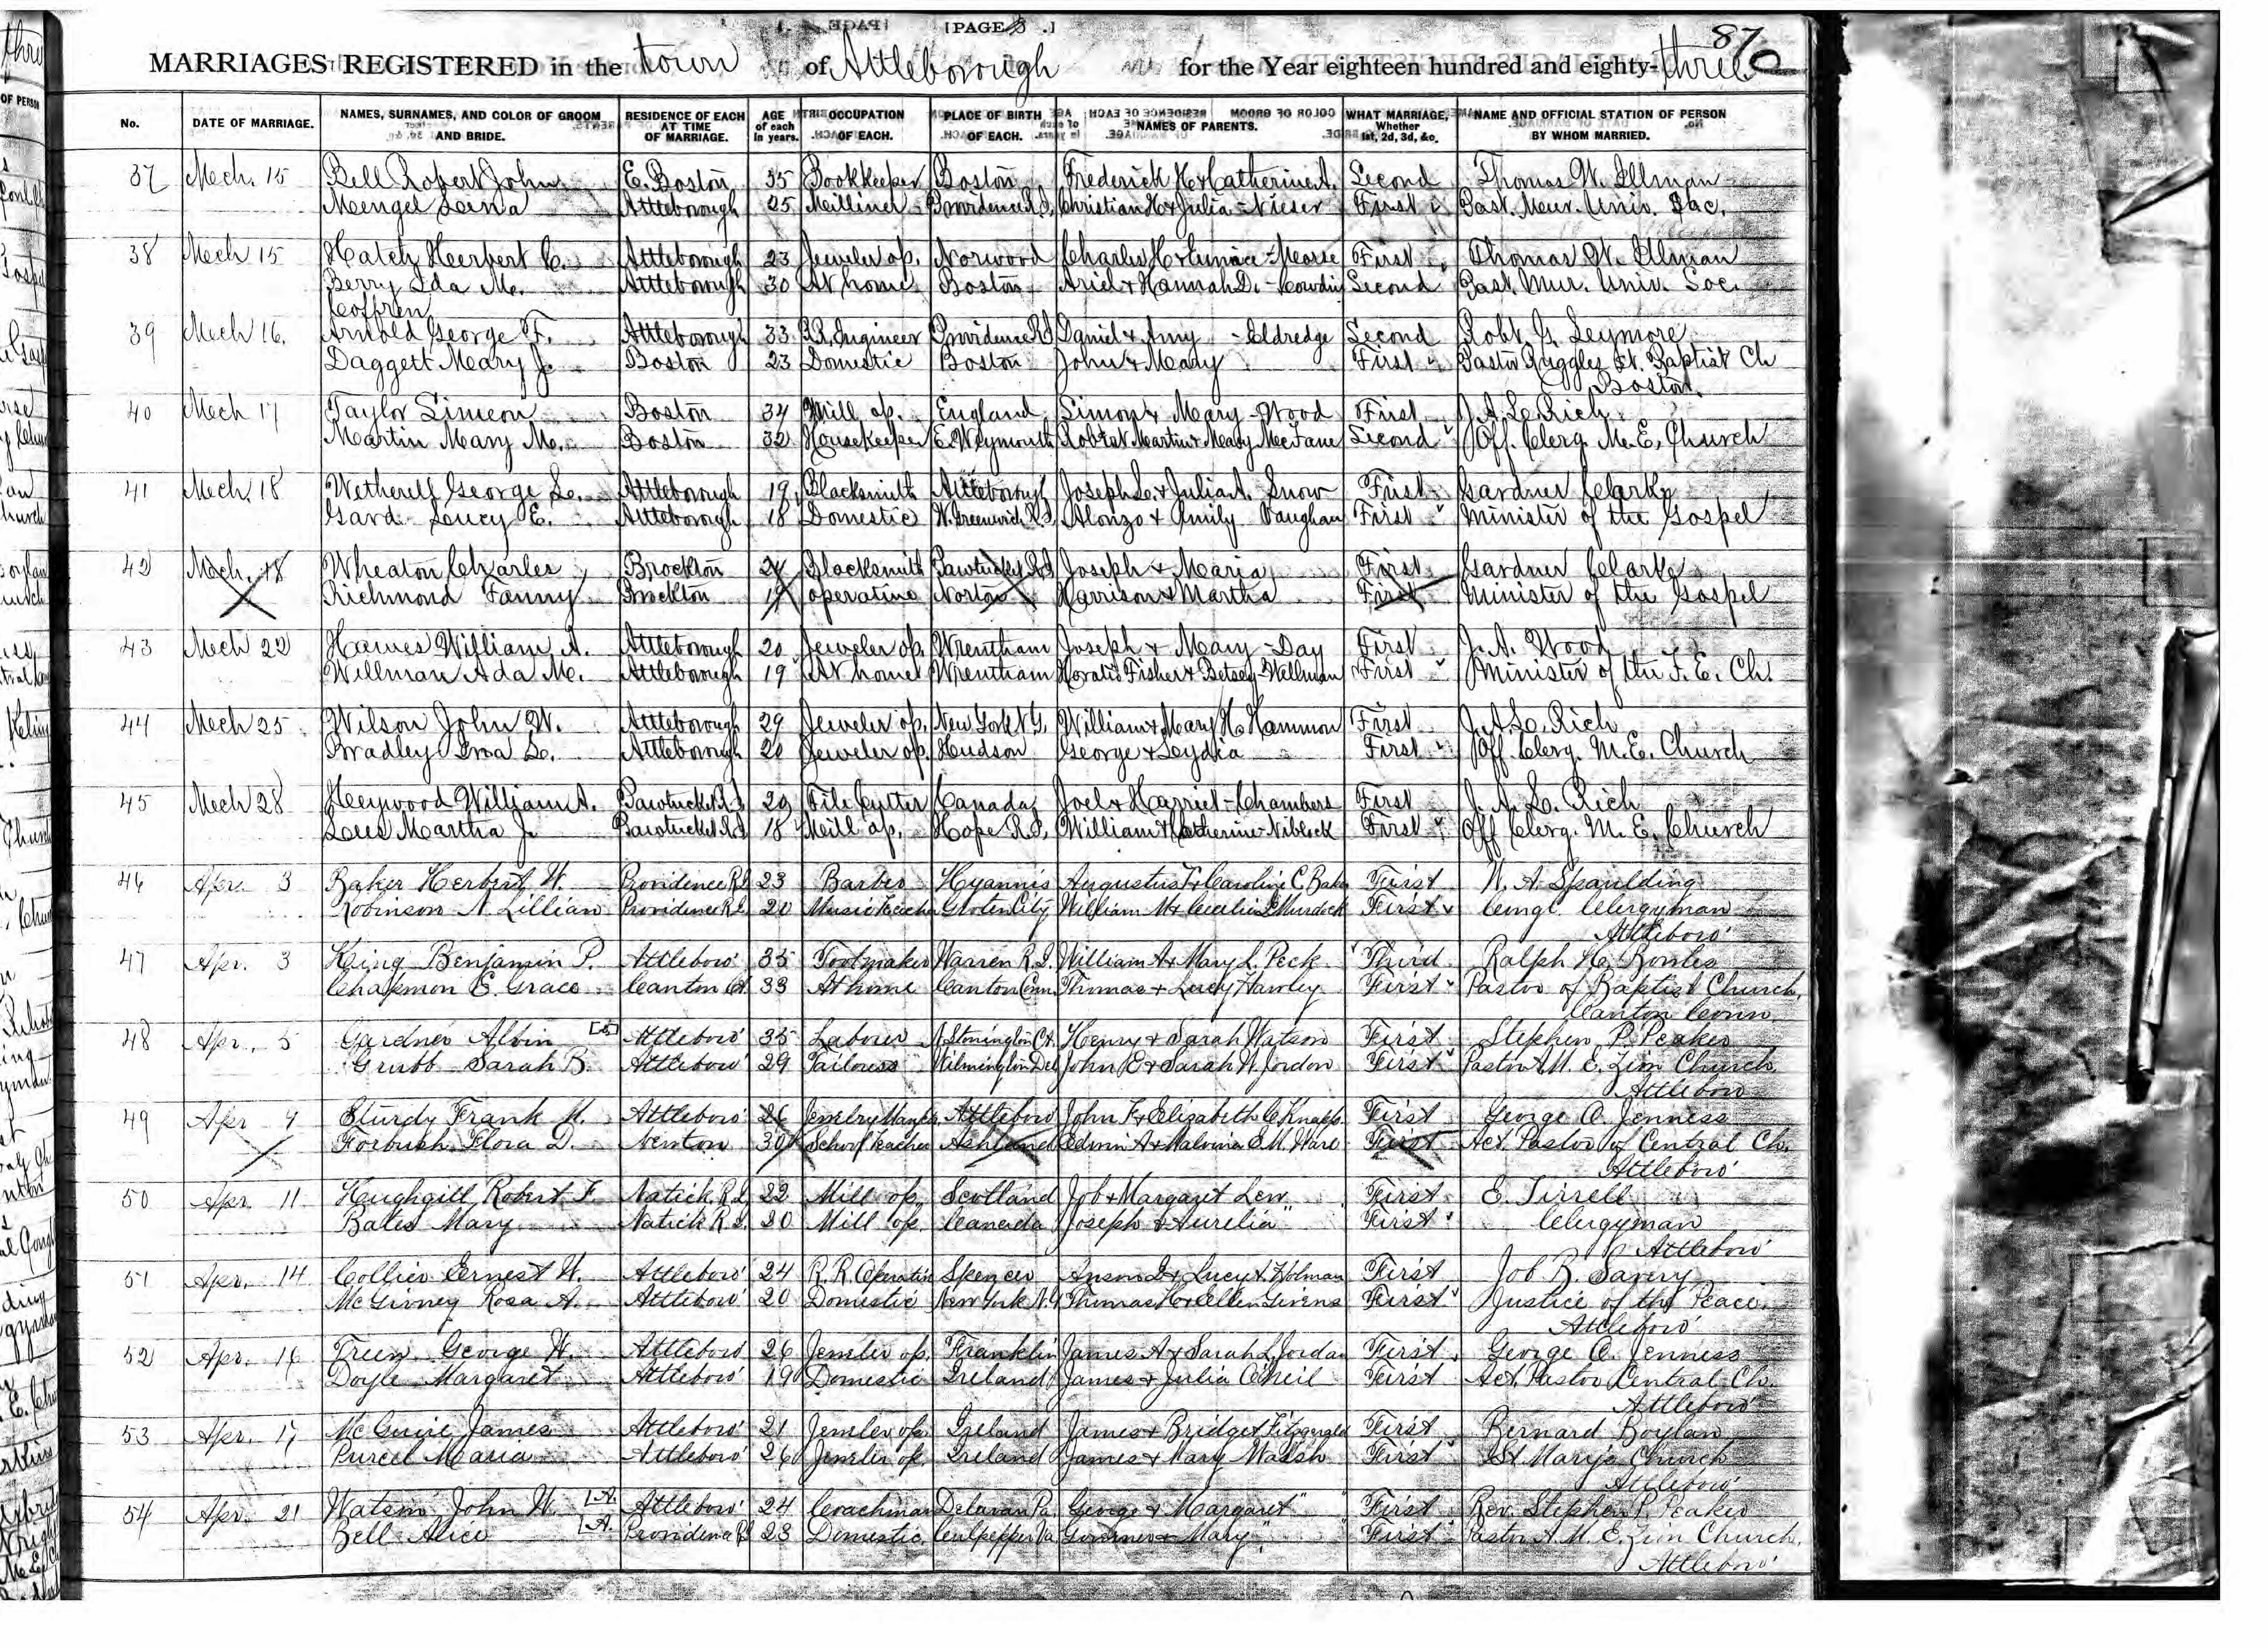 [PAGE 3 .]
87
MARRIAGES REGISTERED in the town of Attleborough for the Year eighteen hundred and eighty-three
No. DATE OF MARRIAGE. NAMES, SURNAMES, AND COLOR OF GROOM AND BRIDE. RESIDENCE OF EACH AT TIME OF MARRIAGE. AGE of each in years. OCCUPATION OF EACH. PLACE OF BIRTH OF EACH. NAMES OF PARENTS. WHAT MARRIAGE, Whether 1st, 2d, 3d, &c. NAME AND OFFICIAL STATION OF PERSON BY WHOM MARRIED.
37 Mch. 15 Bell Robert John E. Boston 35 Bookkeeper Boston Frederick H & Catherine A. Second Thomas W. Illman
Mengel Lena Attleborough 25 Milliner Providence R.I. Christian H & Julia - Nieser First Past. Mur. Univ. Soc.
38 Mch 15 Hatch Herbert C. Attleborough 23 Jeweler op. Norwood Charles H & Eunice - Morse First Thomas W. Illman
Berry Ida M. Attleborough 30 At home Boston Ariel & Hannah D. - Cowdin Second Past. Mur. Univ. Soc.
Coffren
39 Mch 16. Arnold George F. Attleborough 33 R.R. Engineer Providence R.I. Daniel & Amy - Eldredge Second Robt. G. Seymore
Daggett Mary J. Boston 23 Domestic Boston John & Mary First Pastor Ruggles St. Baptist Ch
Boston.
40 Mch 17 Taylor Simeon Boston 34 Mill op. England Simon & Mary - Wood First J. A. L. Rich
Martin Mary M. Boston 32 Housekeeper E. Weymouth Robert Martin & Mary McFane Second Off. Clerg. M. E. Church
41 Mch. 18 Wetherell George L. Attleborough 19 Blacksmith Attleborough Joseph L. & Julia A. Snow First Gardner Clarke
Gard Lucy E. Attleborough 18 Domestic W. Greenwich R.I. Alonzo & Emily Vaughan First Minister of the Gospel
42 Mch. 18 Wheaton Charles Brockton 24 Blacksmith Pawtucket R.I. Joseph & Maria First Gardner Clarke
Richmond Fanny Brockton 19 operative Norton Harrison & Martha First Minister of the Gospel
43 Mch 22 Hawes William A. Attleborough 20 Jeweler op. Wrentham Joseph & Mary - Day First J. A. Wood
Willman Ada M. Attleborough 19 At home Wrentham Horatio Fisher & Betsey - Wellman First Minister of the F. E. Ch.
44 Mch 25 Wilson John W. Attleborough 29 Jeweler op. New York N.Y. William & Mary H. Hammon First J. A. L. Rich
Bradley L. Attleborough 20 Jeweler op. Hudson George & Lydia First Off. Clerg. M. E. Church
45 Mch 28 Heywood William A. Pawtucket R.I. 29 File Cutter Canada Joel & Harriet - Chambers First J. A. L. Rich
Lees Martha J. Pawtucket R.I. 18 Mill op. Hope R.I. William & Catherine - Niblock First Off Clerg. M. E. Church
46 Apr. 3 Baker Herbert W. Providence R.I. 23 Barber Hyannis Augustus F. & Caroline C. Baker First W. A. Spaulding
Robinson N. Lillian Providence R.I. 20 Music Teacher City William M & Murdock First Congl. Clergyman
Attleboro'
47 Apr. 3 King Benjamin P. Attleboro' 35 Toolmaker Warren R.I. William A & Mary L. Peck Third Ralph H. Bowles
Chapmon E. Grace Canton Ct. 33 At home Canton Conn. Thomas & Lucy Hawley First Pastor of Baptist Church,
Canton Conn.
48 Apr. 5 Gardner Albin Attleboro' 35 Laborer N. Stonington Ct. Henry & Sarah Watson First Stephen P. Peaker
Grubb Sarah B. Attleboro' 29 Tailoress Wilmington Del John E & Sarah W. Jordon First Pastor A. M. E. Zion Church
Attleboro
49 Apr 9 Sturdy Frank M. Attleboro' 26 Attleboro John F & Elizabeth C Knapp First George O. Jenness
Forbush Flora D. Newton 30 School Teacher Ashland Edwin A & Malvina E. M. Ware First Act. Pastor of Central Ch.
Attleboro'
50 Apr. 11 Haughgill Robert F. Natick R.I. 22 Mill op. Scotland Job & Margaret Lew First E. Tirrell
Bates Mary Natick R.I. 20 Mill op. Canada Joseph & Aurelia " First Clergyman
Attleboro'
51 Apr. 14 Collier Ernest W. Attleboro' 24 R. R. Operative Spencer Anson & Lucy A. Holman First Job B. Savery
McGivney Rosa A. Attleboro' 20 Domestic New York N.Y. Thomas H & Ellen Givens First Justice of the Peace
Attleboro'
52 Apr. 16 Treen George W. Attleboro 26 Jeweler op. Franklin James A & Sarah L Jordan First George O. Jenness
Doyle Margaret Attleboro' 19 Domestic Ireland James & Julia O'Neil First Act. Pastor Central Ch.
Attleboro'
53 Apr. 17 McGuire James Attleboro' 21 Jeweler op. Ireland James & Bridget Fitzgerald First Bernard Boylan
Purcel Maria Attleboro' 26 Jeweler op. Ireland James & Mary Walsh First St. Mary's Church
Attleboro'
54 Apr. 21 Watson John W. [A. Attleboro' 24 Coachman Delavan Pa. George & Margaret " First Rev. Stephen P. Peaker
Bell Alice [A. Providence R.I. 23 Domestic Culpepper Va. & Mary " First Pastor A. M. E. Zion Church,
Attleboro'